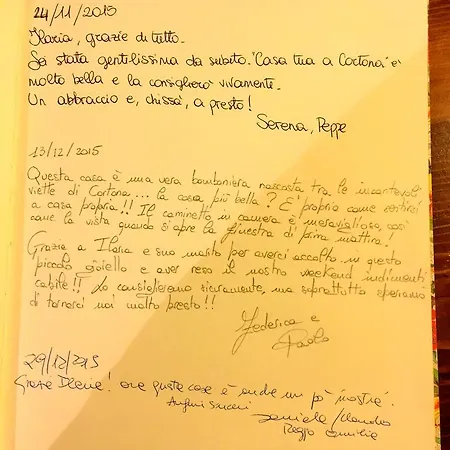 24/11/2015
Ilaria, grazie di tutto.
Sei stata gentilissima da subito. "Casa tua a Cortona" e'
molto bella e la consiglierò vivamente.
Un abbraccio e, chissà, a presto!
Serena, Peppe
13/12/2015
Questa casa è una vera bomboniera nascosta tra le incantevoli
viette di Cortona... la cosa più bella? E' proprio come sentirsi
a casa propria!! Il caminetto in camera è meraviglioso, così
come la vista quando si apre la finestra di prima mattina!
Grazie a Ilaria e suo marito per averci accolto in questo
piccolo gioiello e aver reso il nostro weekend indimenti
cabile!! Lo consiglieremo sicuramente, ma soprattutto speriamo
di tornarci noi molto presto!!
Federica e
Paolo
29/12/2015
Grazie Ilaria! ora questa casa è anche un pò "nostra".
Auguri sinceri
Daniela/Claudio
Reggio Emilia